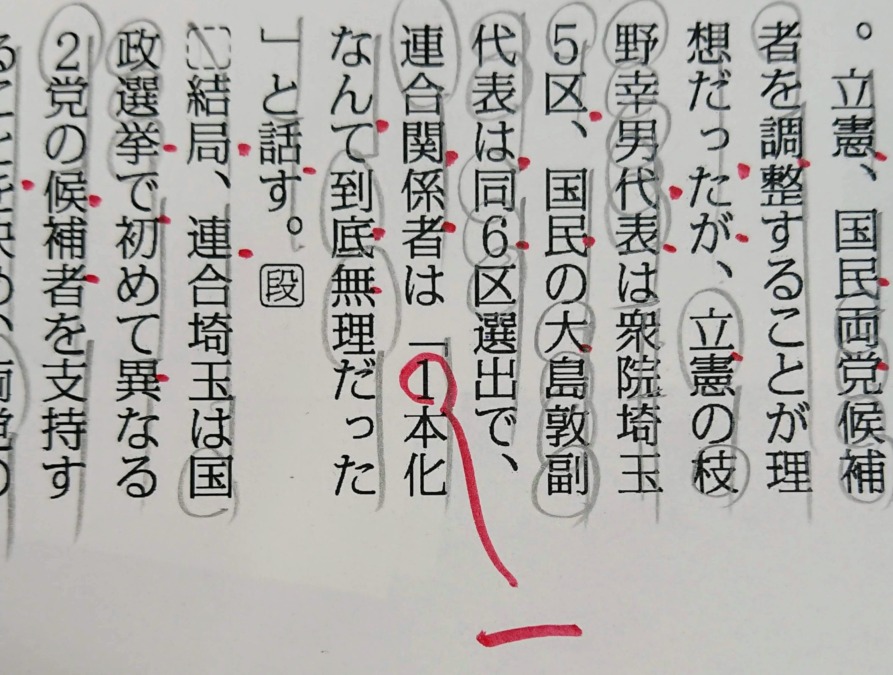 。立憲、国民両党候補
者を調整することが理
想だったが、立憲の枝
野幸男代表は衆院埼玉
5区、国民の大島敦副
代表は同6区選出で、
連合関係者は「1本化
なんて到底無理だった
」と話す。段
結局、連合埼玉は国
政選挙で初めて異なる
2党の候補者を支持す
一